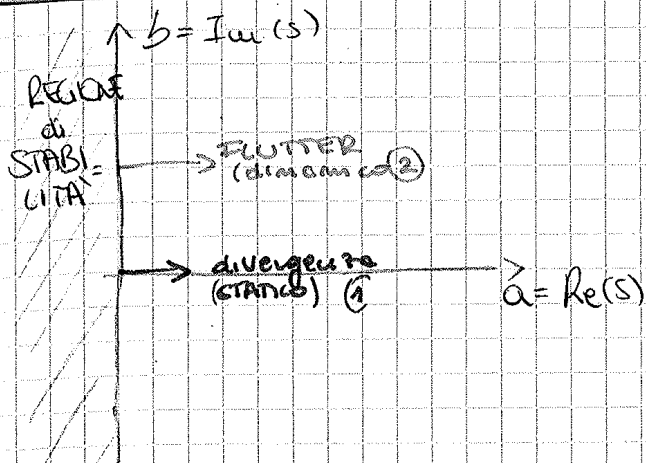 b = Im(s)
REGIONE
di
STABI
LITÀ
FLUTTER
(dinamico) 2
divergenza
(STATICO) 1
a = Re(s)